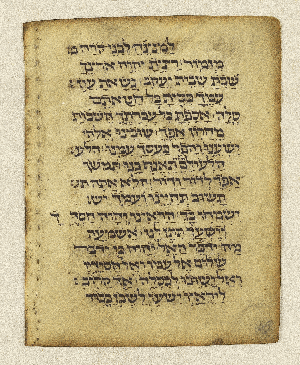 למנצח לבני קרח
מזמור רצית יהוה ארצך
שבת שבית יעקב נשאת עון
עמך כסית כל חטאתם
סלה אספת כל עברתך השיבות
מחרון אפך שובנו אלהי
ישענו והפר כעסך עמנו הלעו
הלעולם תאנף בנו תמשך
אפך לדור ודור הלא אתה תש
תשוב תחיינו ועמך יש
ישמחו בך הראנו יהוה חסדך
וישעך תתן לנו אשמעה
מה ידבר האל יהוה כי ידבר
שלום אל עמו ואל חסידיו
ואל ישובו לכסלה אך קרוב
ליראיו ישעו לשכן כבוד